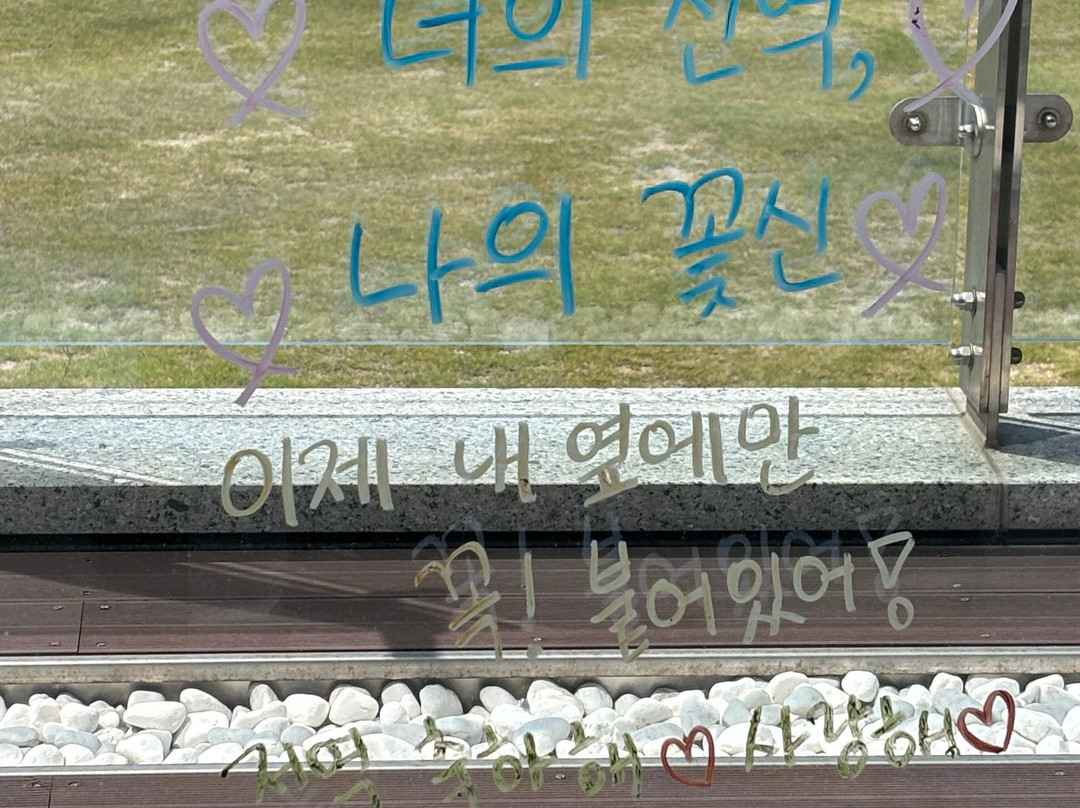 너의 전역,
나의 꽃신
이제 내 옆에만
꼭! 붙어있어!
전역 축하해♡ 사랑해♡